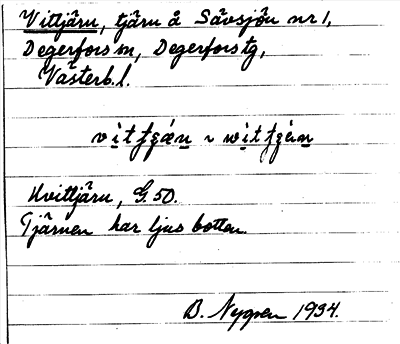 Vittjärn, tjärn å Sävsjön nr 1,
Degerfors sn, Degerfors tg,
Västerb. l.
Hvittjärn, G. 50.
Tjärnen har ljus botten.
B. Nygren 1934.